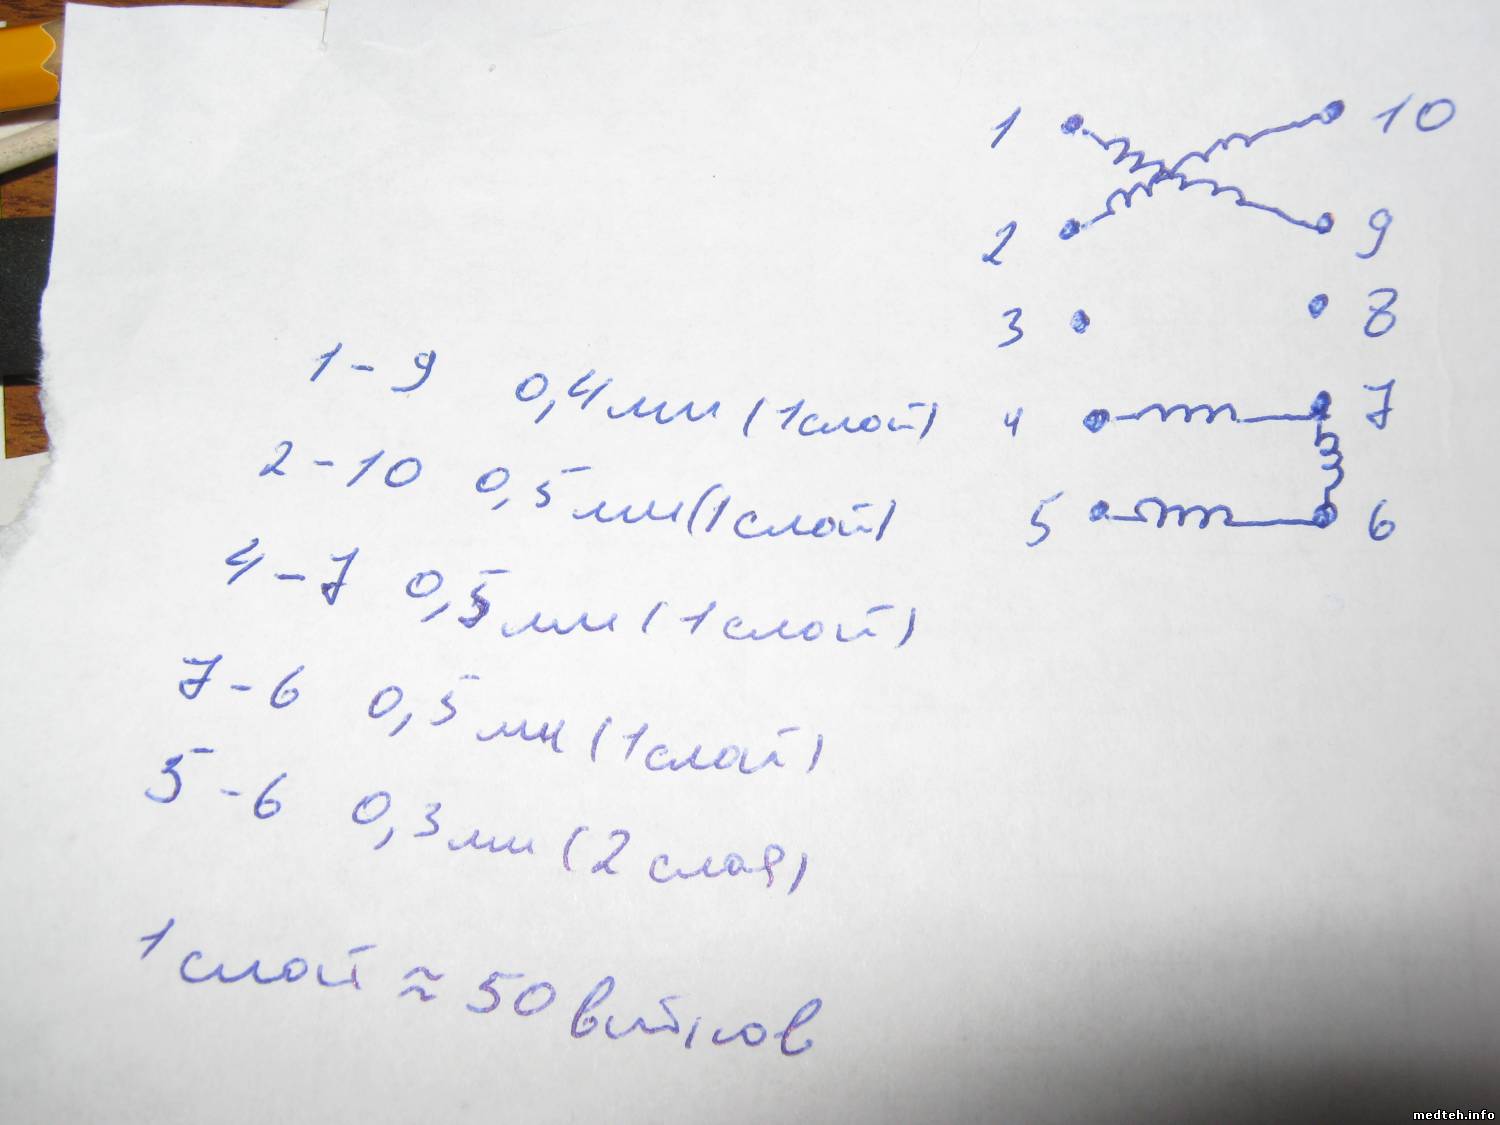 1 10
2 9
3 8
4 7
5 6
1-9 0,4мм (1слой)
2-10 0,5мм (1слой)
4-7 0,5мм (1слой)
7-6 0,5мм (1слой)
5-6 0,3мм (2 слоя)
1 слой ≈ 50 витков
medteh.info